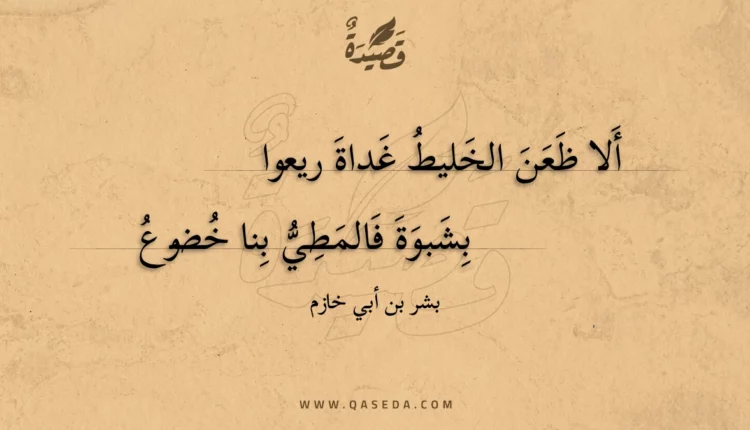 قَصِيْدَةٌ
أَلا ظَعَنَ الخَليطُ غَداةَ ريعوا
بِشَبوَةَ فَالمَطِيُّ بِنا خُضوعُ
بشر بن أبي خازم
WWW.QASEDA.COM